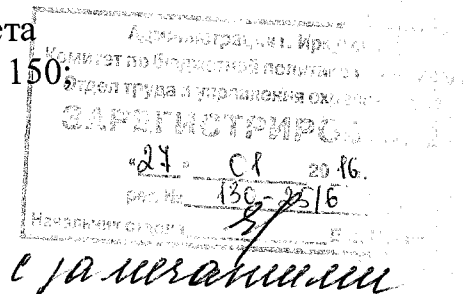 ета
150;
Администрация г. Ирк
Комитет по бюджетной политике
Отдел труда и управления ох
ЗАРЕГИСТРИРО
«27» 01 2016.
рег. № 130-25/6
Начальник отдела
с замечаниями